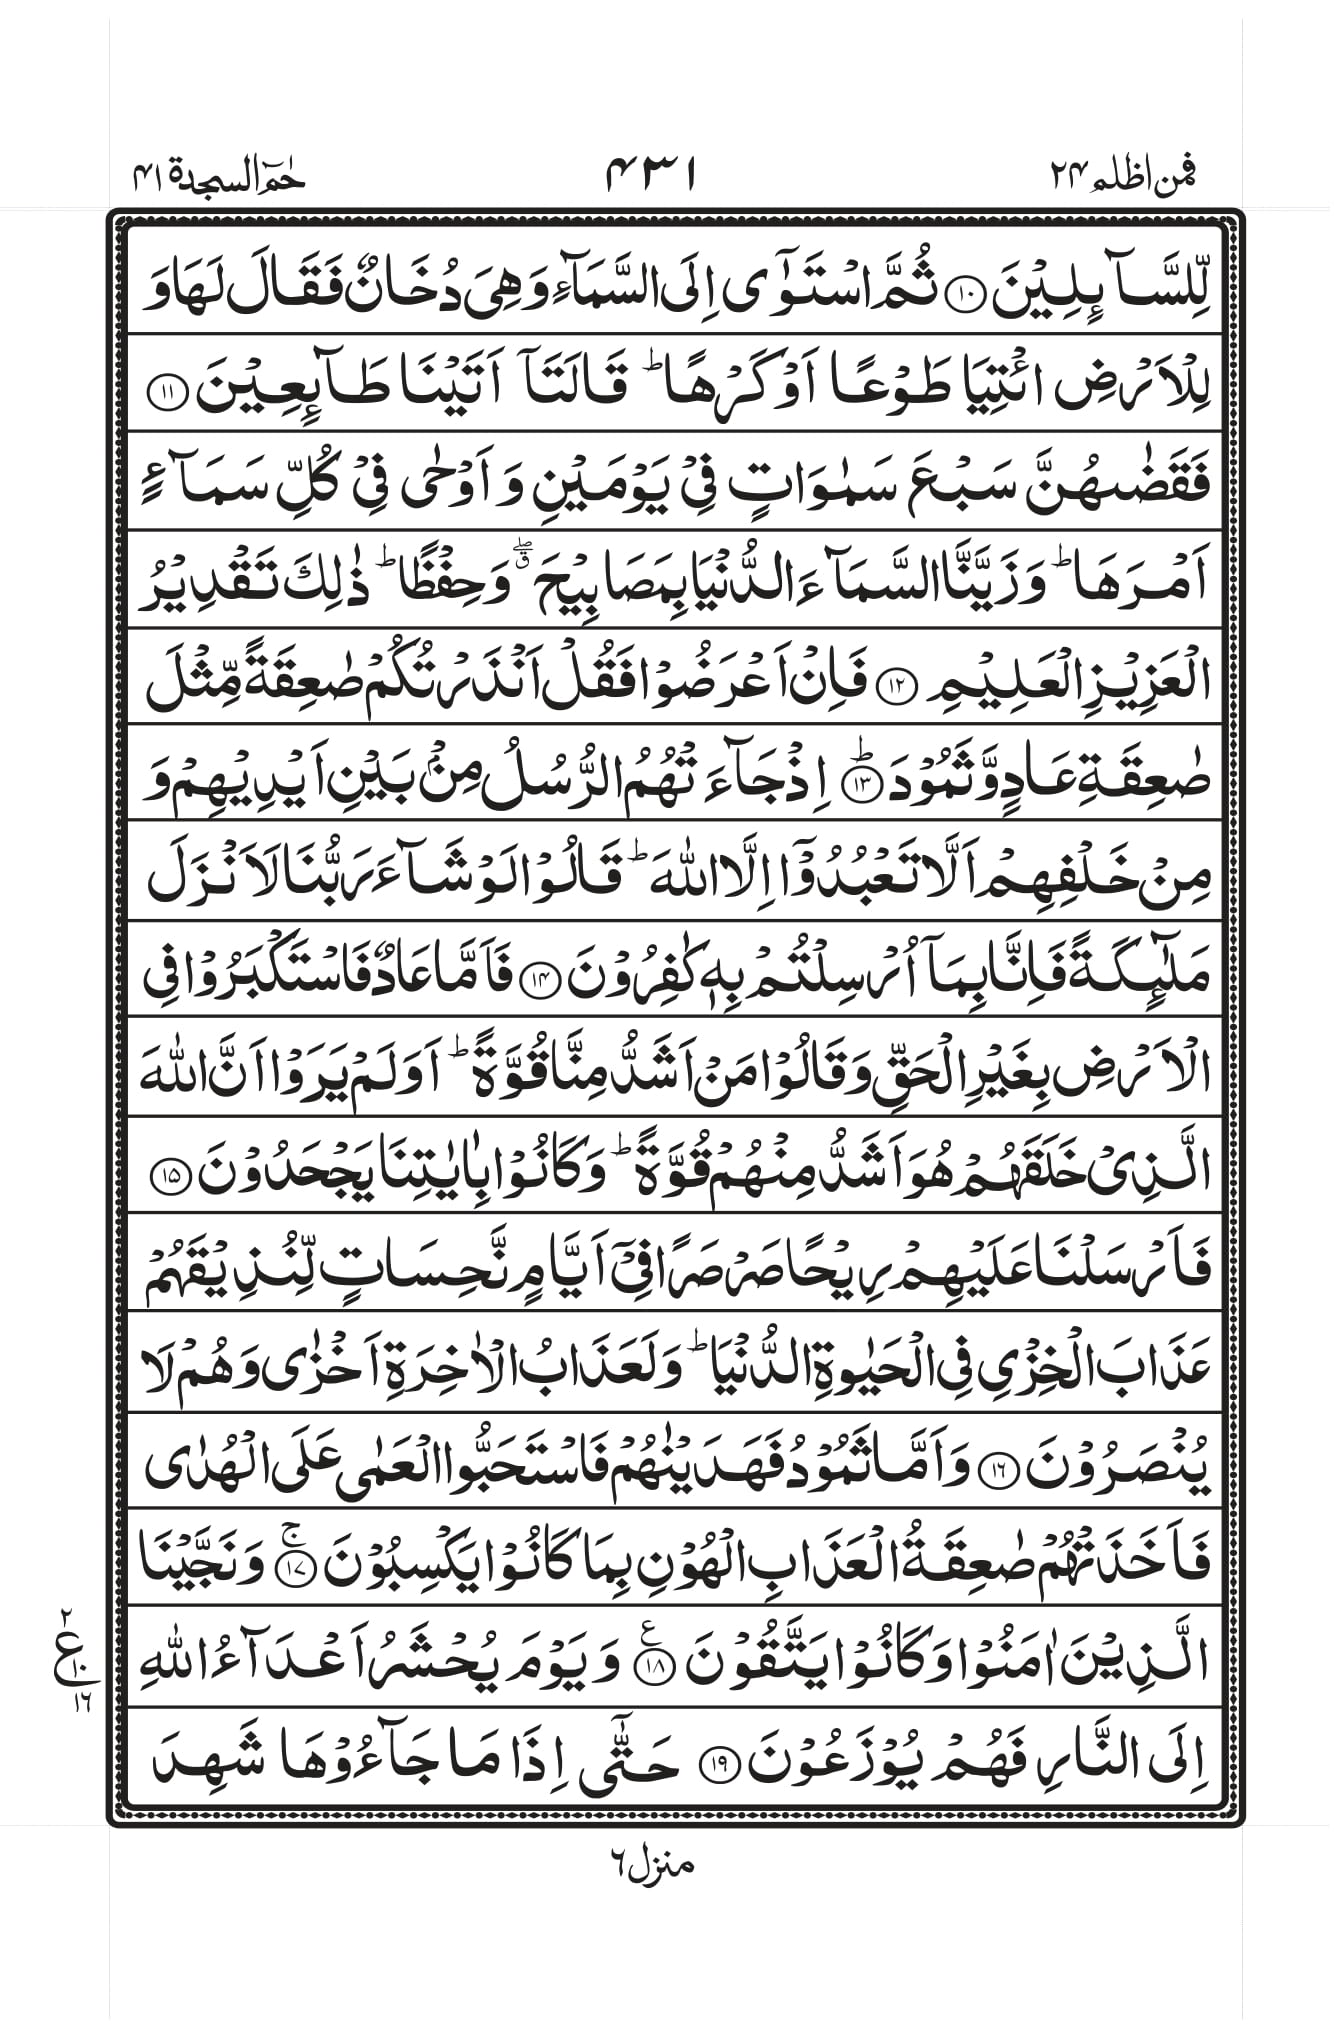 فمن اظلم ۲۴
۴۳۱
حٰمٓ السجدة ۴۱
لِّلسَّآىِٕلِيْنَ ۝۱۰ ثُمَّ اسْتَوٰۤى اِلَى السَّمَآءِ وَهِىَ دُخَانٌ فَقَالَ لَهَا وَ
لِلْاَرْضِ ائْتِيَا طَوْعًا اَوْ كَرْهًا ؕ قَالَتَاۤ اَتَيْنَا طَآىِٕعِيْنَ ۝۱۱
فَقَضٰىهُنَّ سَبْعَ سَمٰوَاتٍ فِىْ يَوْمَيْنِ وَ اَوْحٰى فِىْ كُلِّ سَمَآءٍ
اَمْرَهَا ؕ وَزَيَّنَّا السَّمَآءَ الدُّنْيَا بِمَصَابِيْحَ ۖۗ وَحِفْظًا ؕ ذٰلِكَ تَقْدِيْرُ
الْعَزِيْزِ الْعَلِيْمِ ۝۱۲ فَاِنْ اَعْرَضُوْا فَقُلْ اَنْذَرْتُكُمْ صٰعِقَةً مِّثْلَ
صٰعِقَةِ عَادٍ وَّثَمُوْدَ ۝۱۳ؕ اِذْ جَآءَتْهُمُ الرُّسُلُ مِنْۢ بَيْنِ اَيْدِيْهِمْ وَ
مِنْ خَلْفِهِمْ اَلَّا تَعْبُدُوْۤا اِلَّا اللّٰهَ ؕ قَالُوْا لَوْ شَآءَ رَبُّنَا لَاَنْزَلَ
مَلٰٓىِٕكَةً فَاِنَّا بِمَاۤ اُرْسِلْتُمْ بِهٖ كٰفِرُوْنَ ۝۱۴ فَاَمَّا عَادٌ فَاسْتَكْبَرُوْا فِى
الْاَرْضِ بِغَيْرِ الْحَقِّ وَقَالُوْا مَنْ اَشَدُّ مِنَّا قُوَّةً ؕ اَوَلَمْ يَرَوْا اَنَّ اللّٰهَ
الَّذِىْ خَلَقَهُمْ هُوَ اَشَدُّ مِنْهُمْ قُوَّةً ؕ وَكَانُوْا بِاٰيٰتِنَا يَجْحَدُوْنَ ۝۱۵
فَاَرْسَلْنَا عَلَيْهِمْ رِيْحًا صَرْصَرًا فِىْۤ اَيَّامٍ نَّحِسَاتٍ لِّنُذِيْقَهُمْ
عَذَابَ الْخِزْىِ فِى الْحَيٰوةِ الدُّنْيَا ؕ وَلَعَذَابُ الْاٰخِرَةِ اَخْزٰى وَهُمْ لَا
يُنْصَرُوْنَ ۝۱۶ وَاَمَّا ثَمُوْدُ فَهَدَيْنٰهُمْ فَاسْتَحَبُّوا الْعَمٰى عَلَى الْهُدٰى
فَاَخَذَتْهُمْ صٰعِقَةُ الْعَذَابِ الْهُوْنِ بِمَا كَانُوْا يَكْسِبُوْنَ ۝۱۷ۚ وَنَجَّيْنَا
الَّذِيْنَ اٰمَنُوْا وَكَانُوْا يَتَّقُوْنَ ۝۱۸ع وَيَوْمَ يُحْشَرُ اَعْدَآءُ اللّٰهِ
۲
ع
۱۰
۱۶
اِلَى النَّارِ فَهُمْ يُوْزَعُوْنَ ۝۱۹ حَتّٰۤى اِذَا مَا جَآءُوْهَا شَهِدَ
منزل ۶